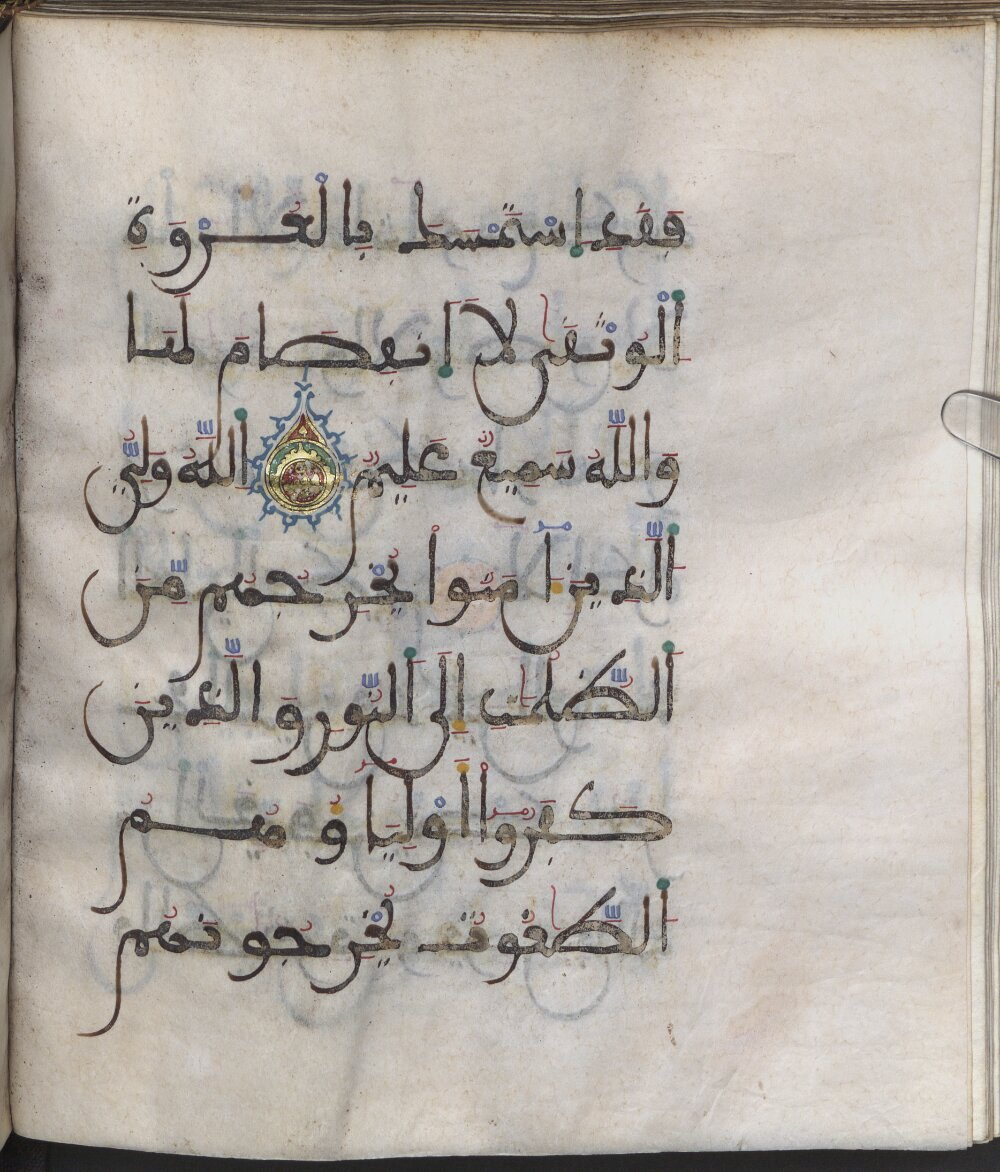 فَقَدِ اِسْتَمْسَكَ بِالْعُرْوَةِ
اِ۬لْوُثْق۪يٰ لَا اَ۪نفِصَامَ لَهَا
وَاللَّهُ سَمِيعٌ عَلِيمٌ اَ۬للَّهُ وَلِيُّ
اَ۬لَّذِينَ ءَامَنُواْ يُخْرِجُهُم مِّنَ
اَ۬لظُّلُمَٰتِ إِلَى اَ۬لنُّورِ وَالَّذِينَ
كَفَرُواْ أَوْلِيَاؤُهُمُ
اُ۬لطَّٰغُوتُ يُخْرِجُونَهُم